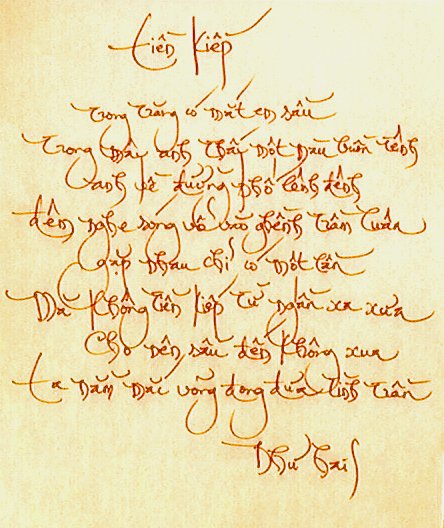 Tiền Kiếp
Trong trăng có mắt em sầu
Trong mây anh thấy một màu buồn tênh
anh về đường phố lênh đênh
đêm nghe sóng vỗ vào ghềnh trầm luân
gặp nhau chỉ có một lần
Mà không tiền kiếp từ ngàn xa xưa
Cho nên sầu đến không xua
Ta nằm mãi võng đong đưa tình trần
Như